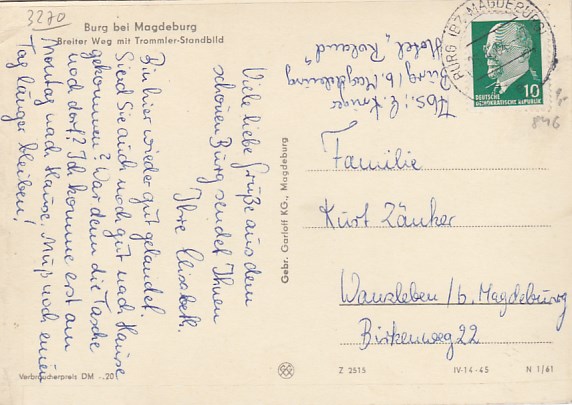 3270
Burg bei Magdeburg
Breiter Weg mit Trommler-Standbild
Viele liebe Grüße aus dem
schönen Burg sendet Ihnen
Ihre Liesbeth.
Bin hier wieder gut gelandet.
Sind Sie auch noch gut nach Hause
gekommen? War denn die Tasche
noch dort? Ich komme erst am
Montag nach Hause. Muß noch einen
Tag länger bleiben!
Verbraucherpreis DM -,20
Gebr. Garloff KG., Magdeburg
Abs.: L. Krüger
Burg / b. Magdeburg
Hotel „Roland"
BURG (BZ. MAGDEBURG)
10
DEUTSCHE
DEMOKRATISCHE REPUBLIK
846
Familie
Kurt Zänker
Wanzleben /b. Magdeburg
Birkenweg 22
Z 2515
IV-14-45
N 1/61